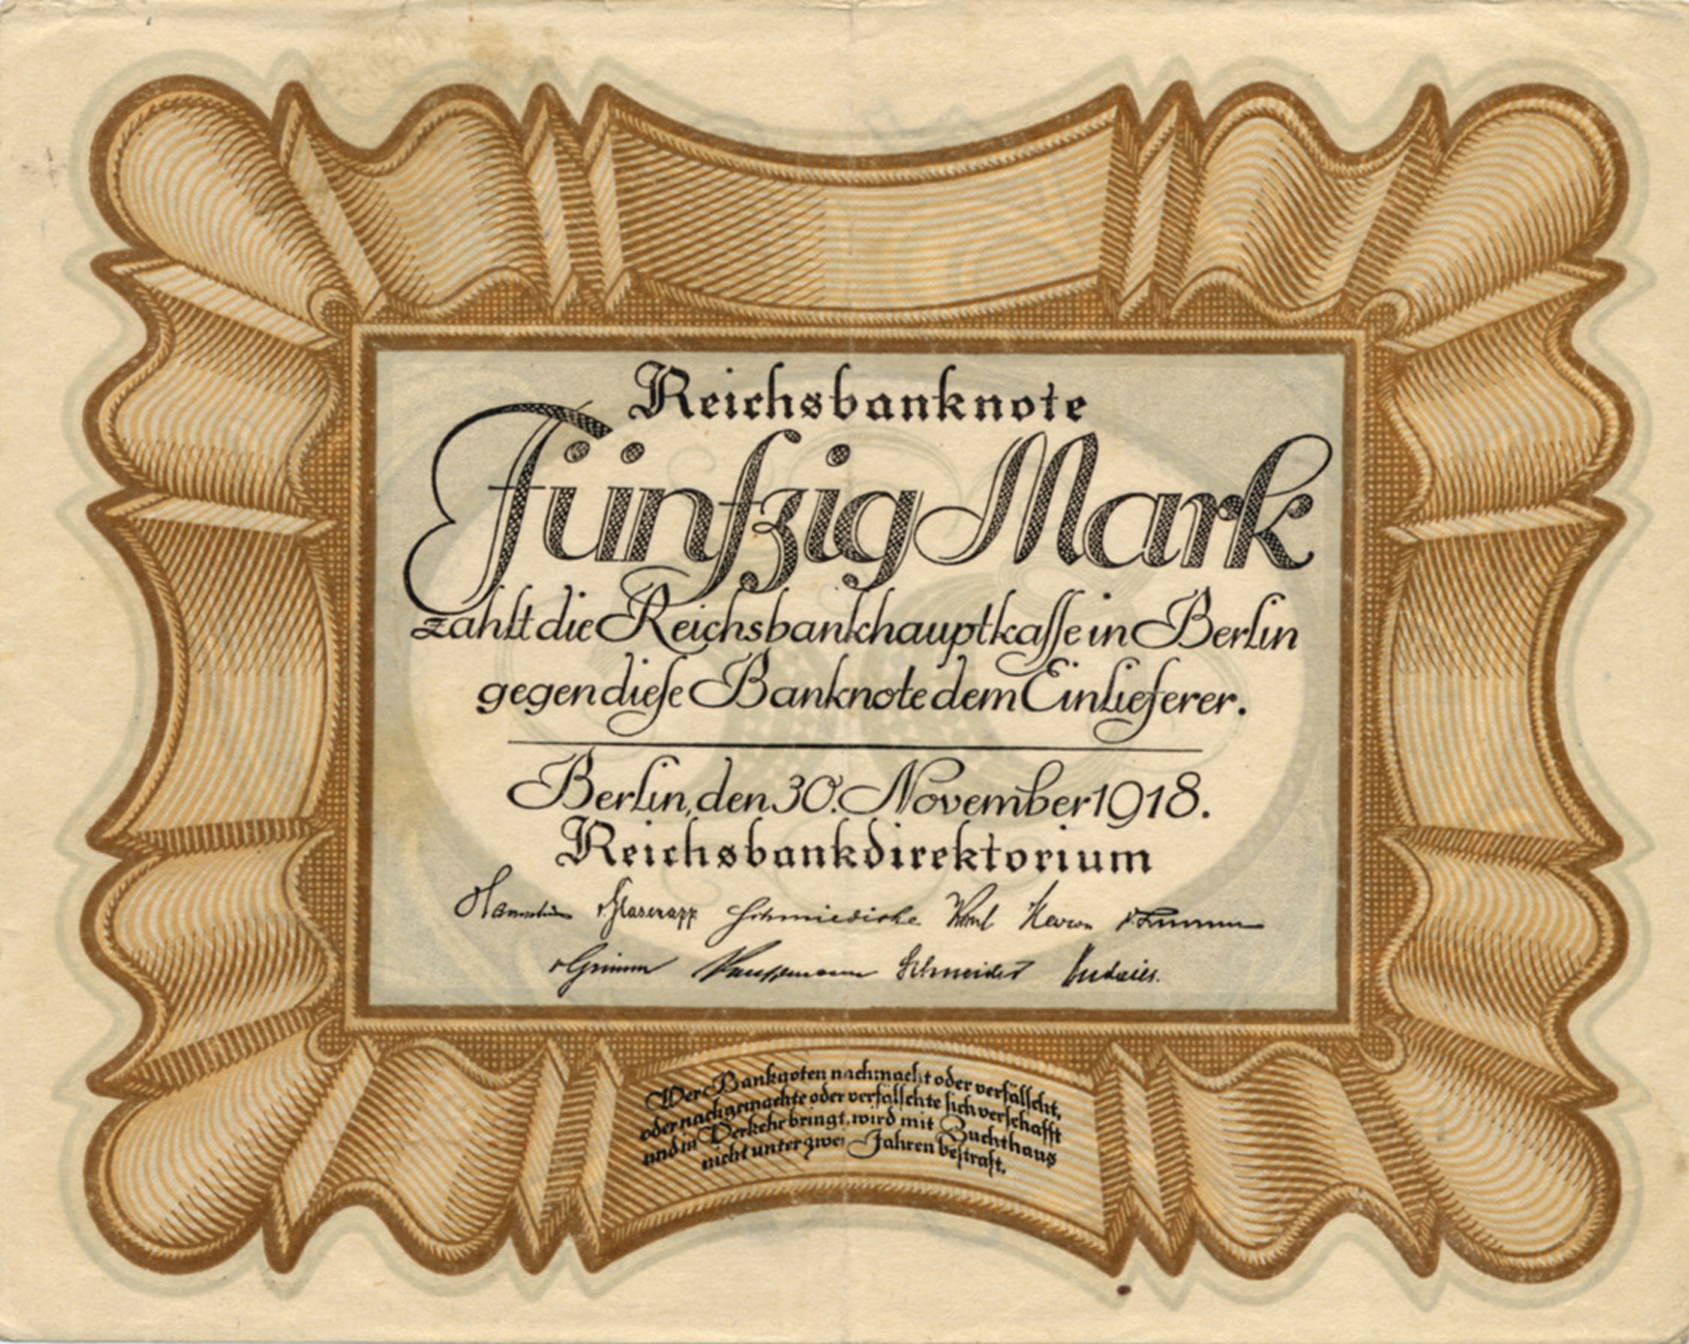 Reichsbanknote
Fünfzig Mark
zahlt die Reichsbankhauptkaſſe in Berlin
gegen dieſe Banknote dem Einlieferer.
Berlin, den 30. November 1918.
Reichsbankdirektorium
v Glasenapp Schmiedicke Korn
v Grimm Kauffmann Schneider Budczies
Wer Banknoten nachmacht oder verfälſcht,
oder nachgemachte oder verfälſchte ſich verſchafft
und in Verkehr bringt, wird mit Zuchthaus
nicht unter zwei Jahren beſtraft.